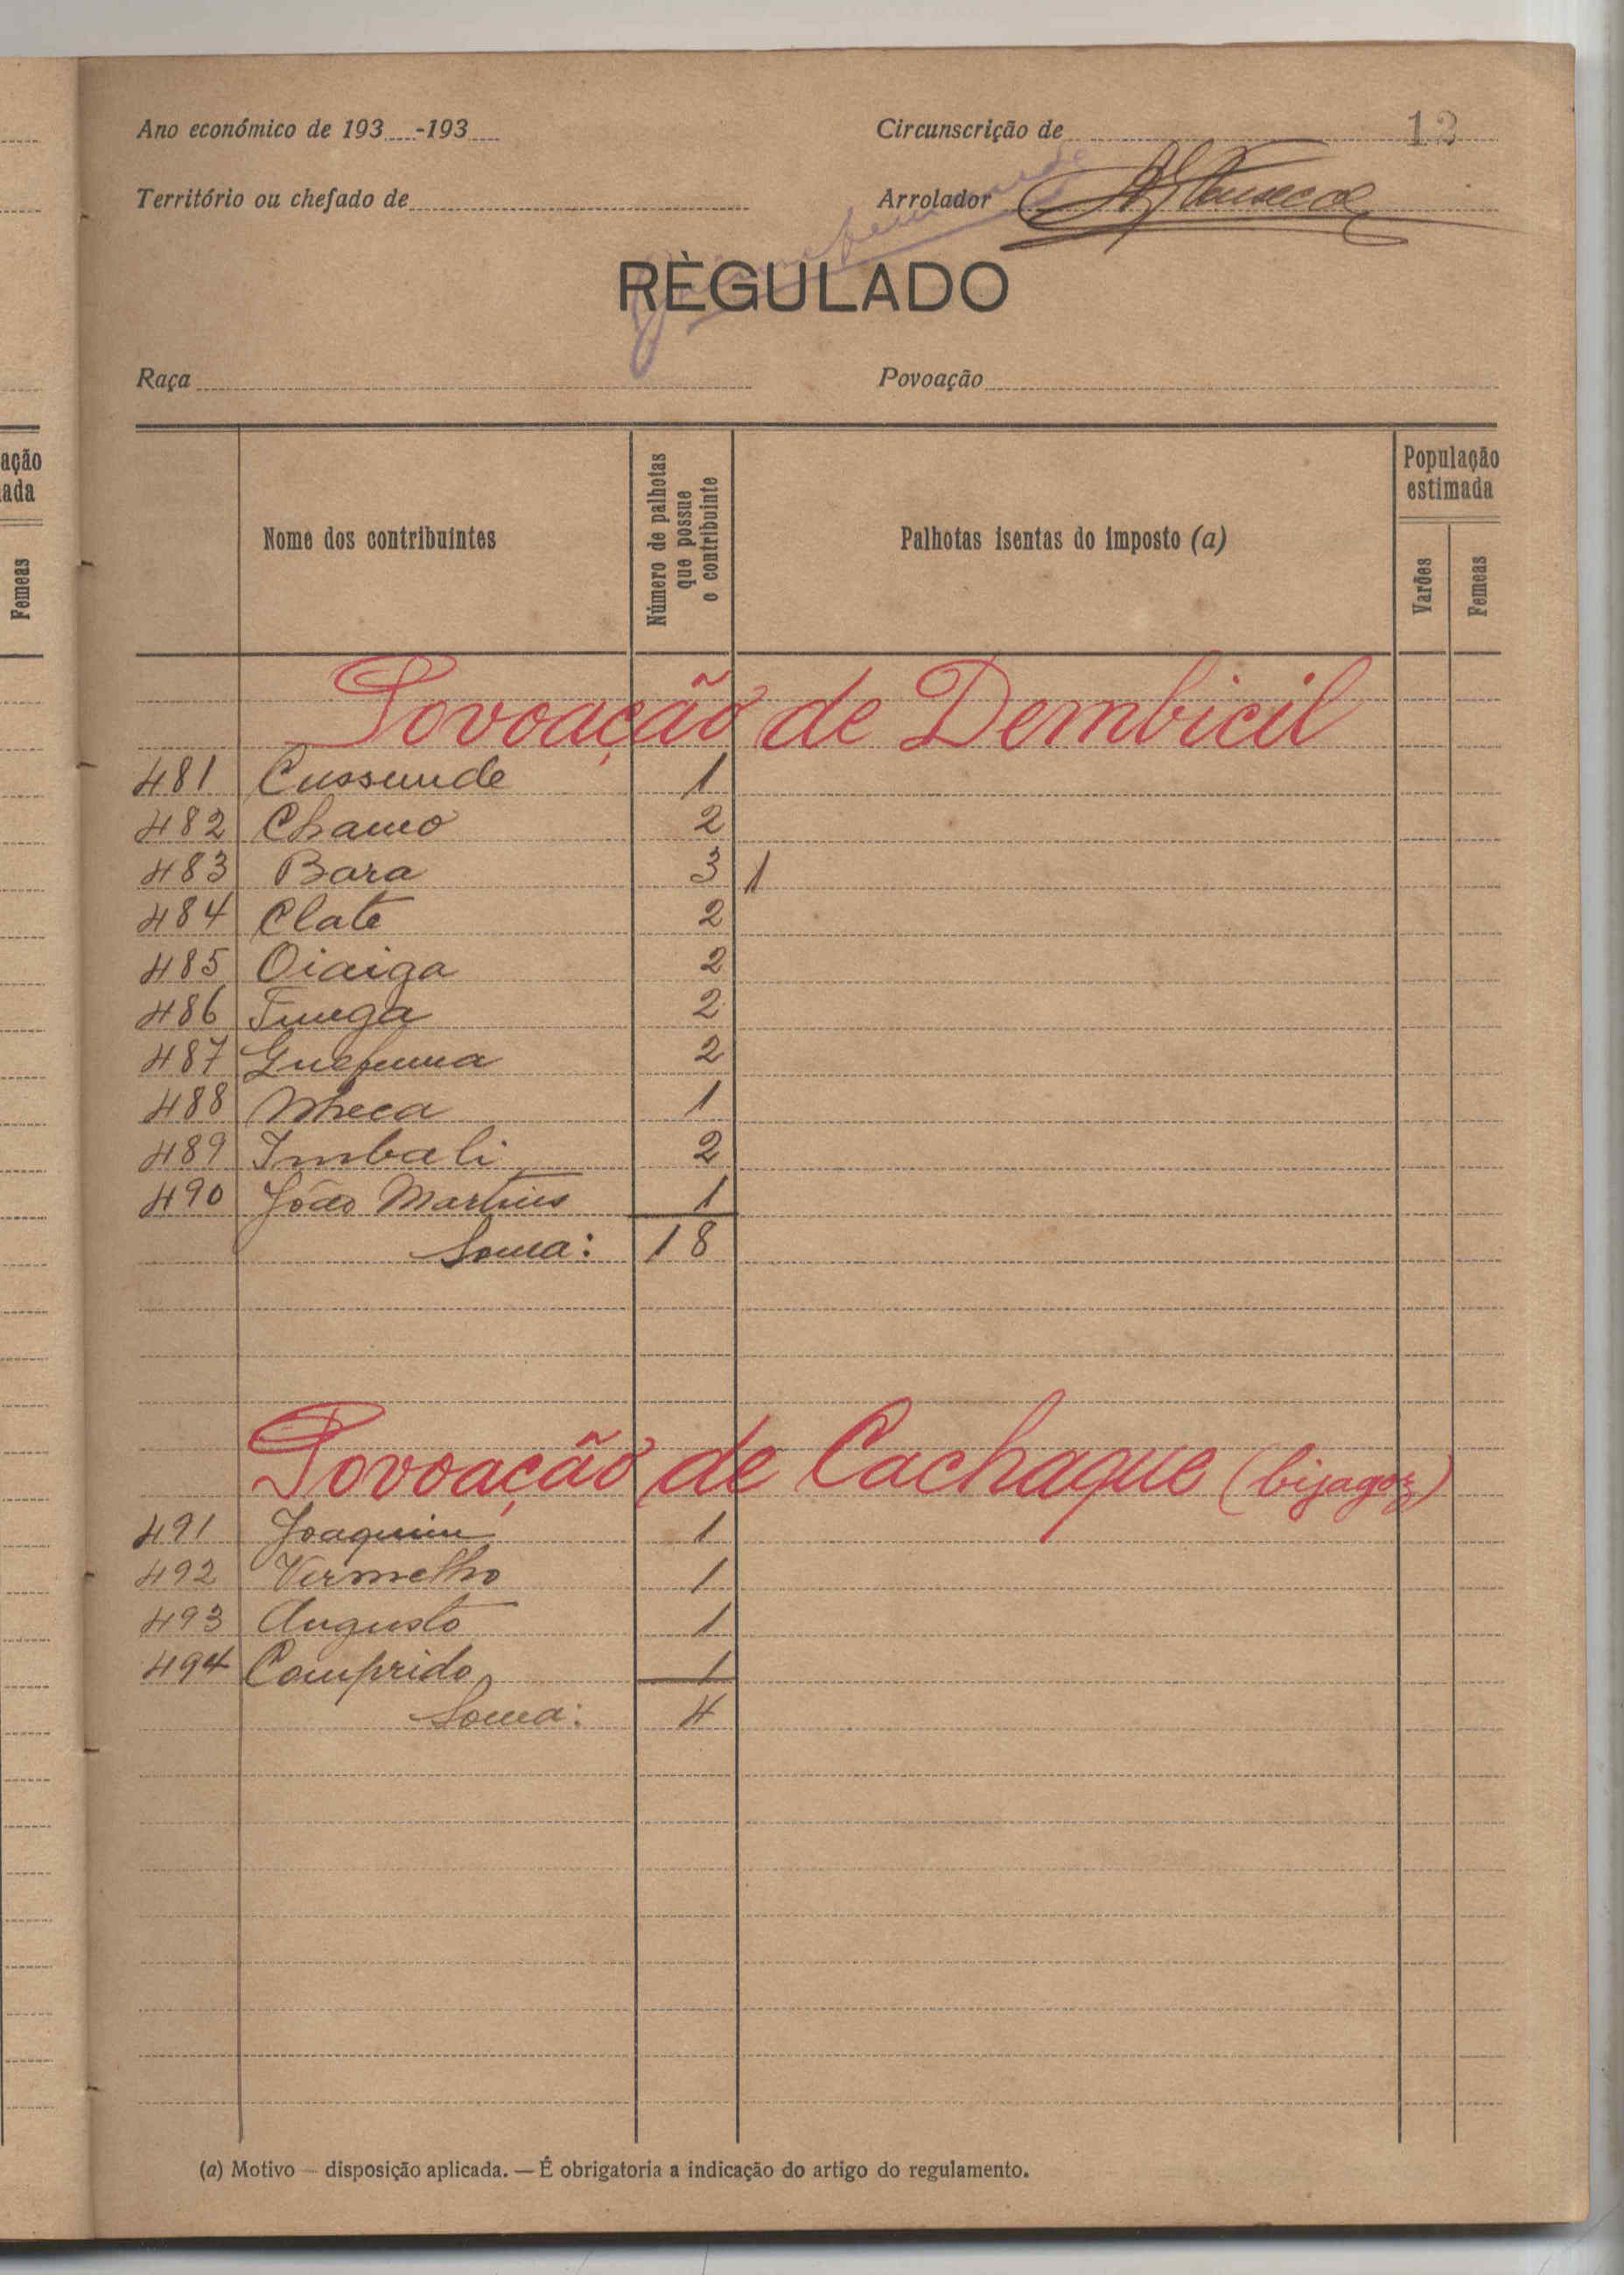 Ano económico de 193 -193 Circunscrição de 12
Território ou chefado de Arrolador
RÈGULADO
Raça Povoação
ação
ada
Femeas
Nome dos contribuintes
Número de palhotas que possue o contribuinte
Palhotas isentas do imposto (a)
População estimada
Varões
Femeas
Povoação de Dembicil
481 Cussunde 1
482 Chamo 2
483 Bara 3 1
484 Clate 2
485 Oiaiga 2
486 Funga 2
487 2
488 Nheca 1
489 Imbali 2
490 João Martins 1
Soma: 18
Povoação de Cachaque (bijagoz)
491 Joaquim 1
492 Vermelho 1
493 Augusto 1
494 Comprido 1
Soma: 4
(a) Motivo — disposição aplicada. — É obrigatoria a indicação do artigo do regulamento.